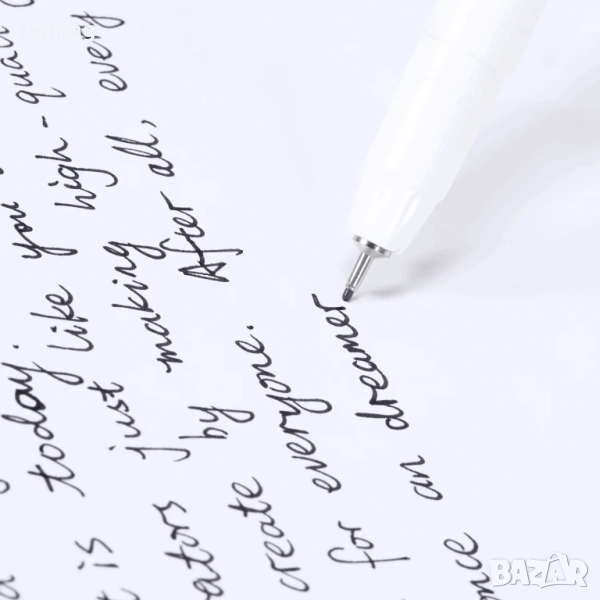 t is today.
ators just like you
create by making high-quali
for everyone. After all, every
nce an dreamer
BAZAR